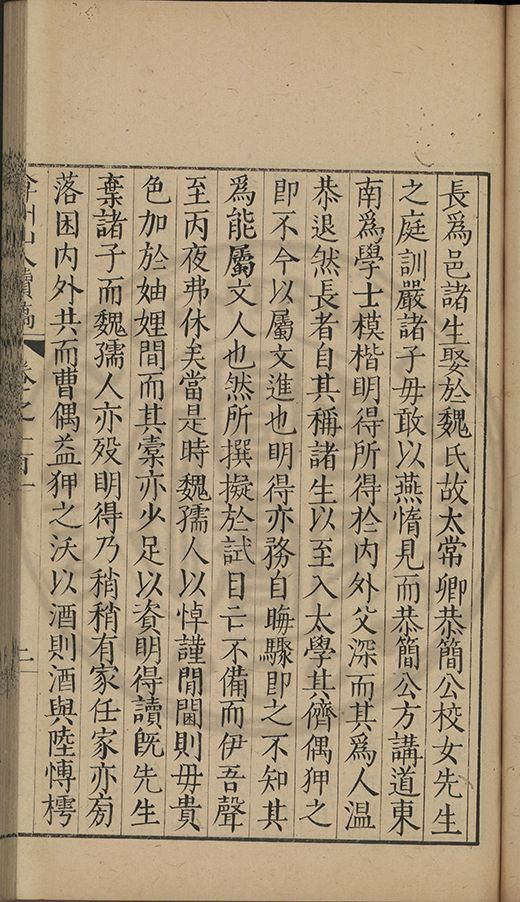 長爲邑諸生娶於魏氏故太常卿恭簡公校女先生
之庭訓嚴諸子毋敢以燕惰見而恭簡公方講道東
南爲學士模楷明得所得於内外父深而其爲人温
恭退然長者自其稱諸生以至入太學其儕偶狎之
即不令以屬文進也明得亦務自晦驟即之不知其
爲能屬文人也然所撰擬於試目亡不備而伊吾聲
至丙夜弗休矣當是時魏孺人以悼謹閒闑則毋貴
色加於妯娌間而其橐亦少足以資明得讀旣先生
棄諸子而魏孺人亦殁明得乃稍稍有家任家亦旁
落困内外共而曹偶益狎之沃以酒則酒與陸博樗
弇州山人續稿 卷之一百一 二